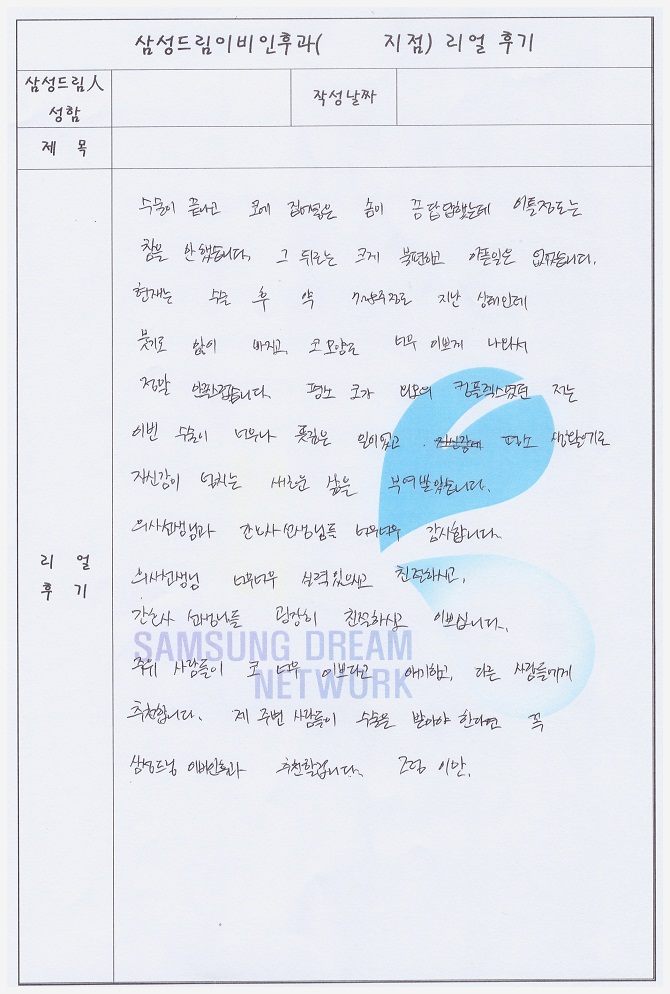 삼성드림이비인후과( 지점) 리얼 후기
삼성드림人
성함
작성날짜
제 목
리 얼
후 기
수술이 끝나고 코에 집어넣은 솜이 좀 답답했는데 이틀정도는
잠을 안 잤습니다. 그 뒤로는 크게 불편하고 아픈일은 없었습니다.
현재는 수술 후 약 지난 상태인데
붓기도 많이 빠지고, 코모양도 너무 이쁘게 나와서
정말 만족합니다. 평소 코가 외모의 컴플렉스였던 저는
이번 수술이 너무나 뜻깊은 일이었고 평소 생활에도
자신감이 넘치는 새로운 삶을 부여받았습니다.
의사선생님과 간호사선생님들 너무너무 감사합니다.
의사선생님 너무너무 실력있으시고 친절하시고,
간호사 선생님들 굉장히 친절하시고 이쁘십니다.
SAMSUNG DREAM
NETWORK
주위 사람들이 코 너무 이쁘다고 얘기하고, 다른 사람들에게
추천합니다. 제 주변 사람들이 수술을 받아야 한다면 꼭
삼성드림 이비인후과 추천할겁니다. 그럼 이만.